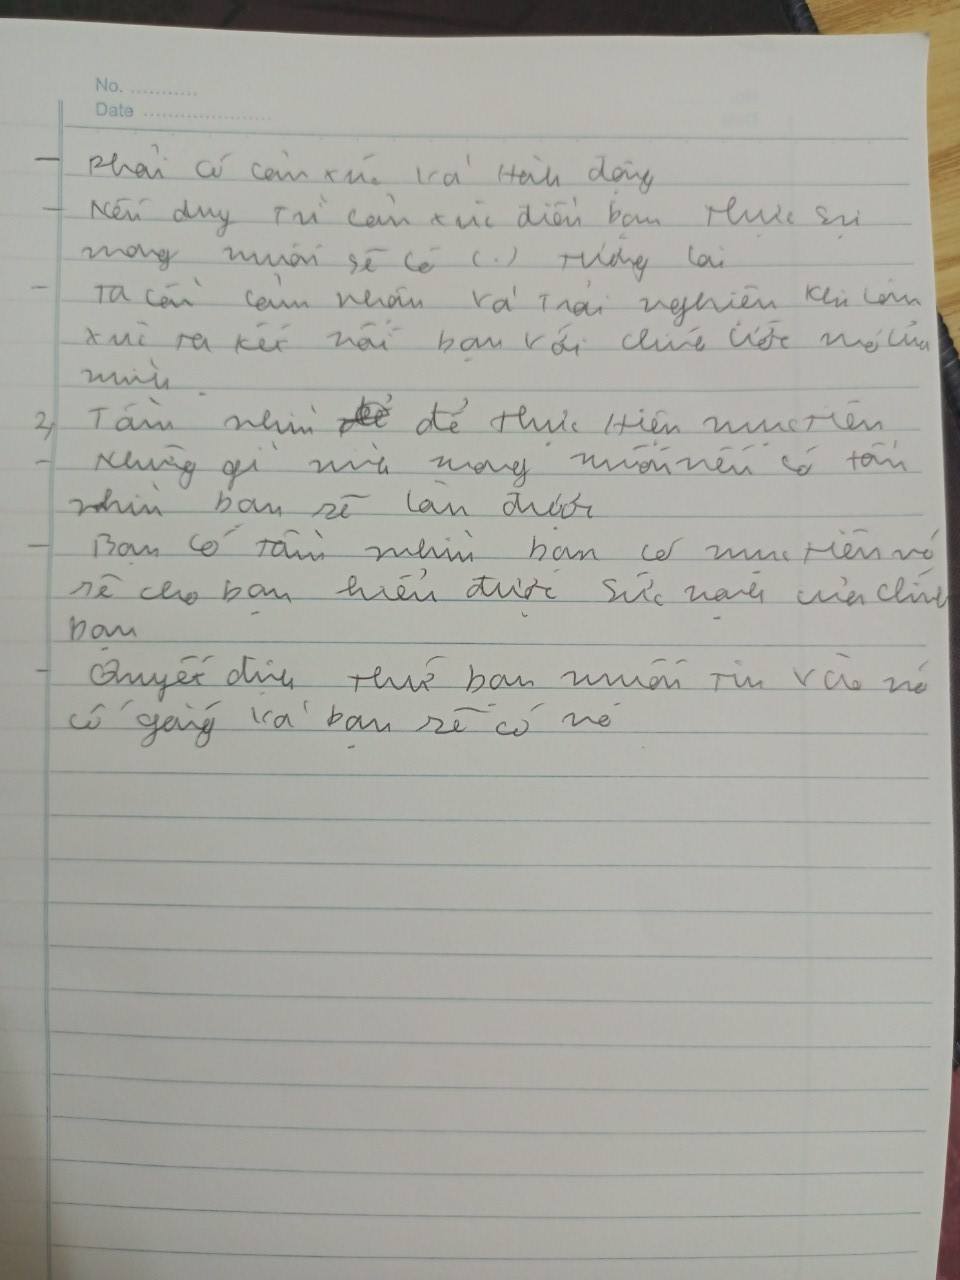 No. ...........
Date .....................
- Phải có cảm xúc và Hành động
- Nếu duy trì cảm xúc điều bạn thực sự
mong muốn sẽ có (.) tương lai
- Ta cần cảm nhận và trải nghiệm khi cảm
xúc ta kết nối bạn với chính ước mơ của
mình
2, Tầm nhìn để thực hiện mục tiêu
- Những gì mình mong muốn nếu có tầm
nhìn bạn sẽ làm được
- Bạn có tầm nhìn bạn có mục tiêu nó
sẽ cho bạn hiểu được sức mạnh của chính
bạn
- Quyết định thứ bạn muốn tin vào nó
cố gắng và bạn sẽ có nó